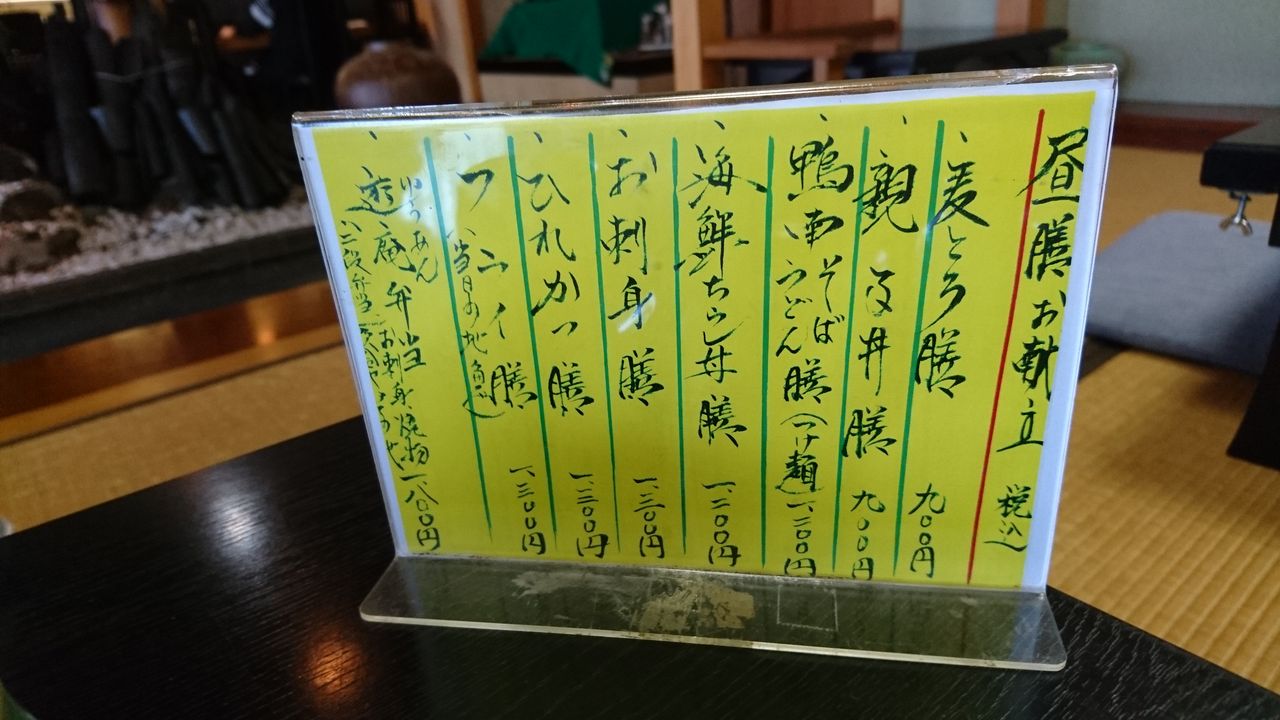 昼膳お献立 税込
、麦とろ膳 九〇〇円
、親子丼膳 九〇〇円
、鴨南そばうどん膳(つけ麺) 一、二〇〇円
、海鮮ちらし丼膳 一、二〇〇円
、お刺身膳 一、三〇〇円
、ひれかつ膳 一、二〇〇円
、フライ膳 一、三〇〇円
当日の地魚
、遊庵弁当 お刺身、焼物 一、八〇〇円
ゆうあん
二段弁当